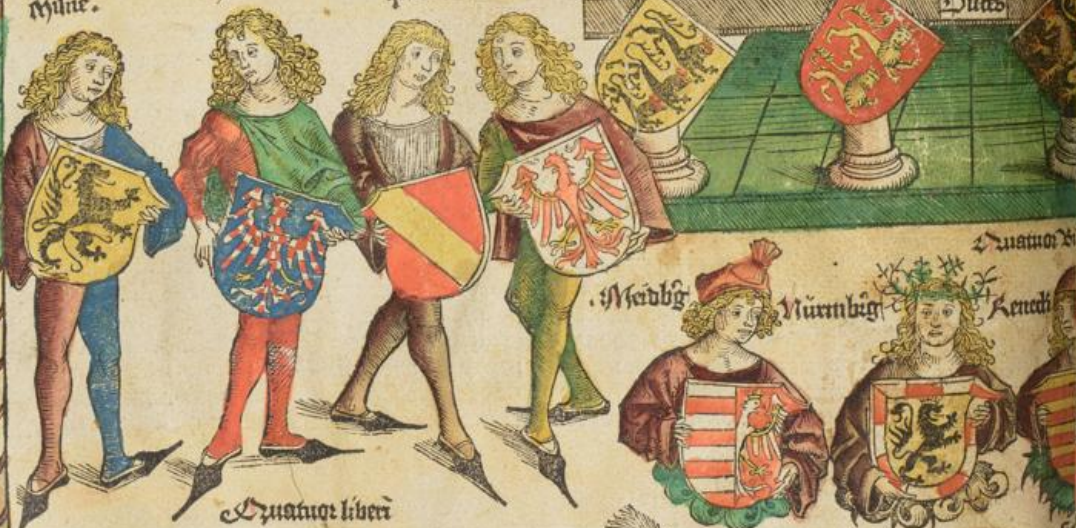 Misne.
Duces
Quatuor
Meidb'g
Nürmb'g
Reneck
Quatuor liberi